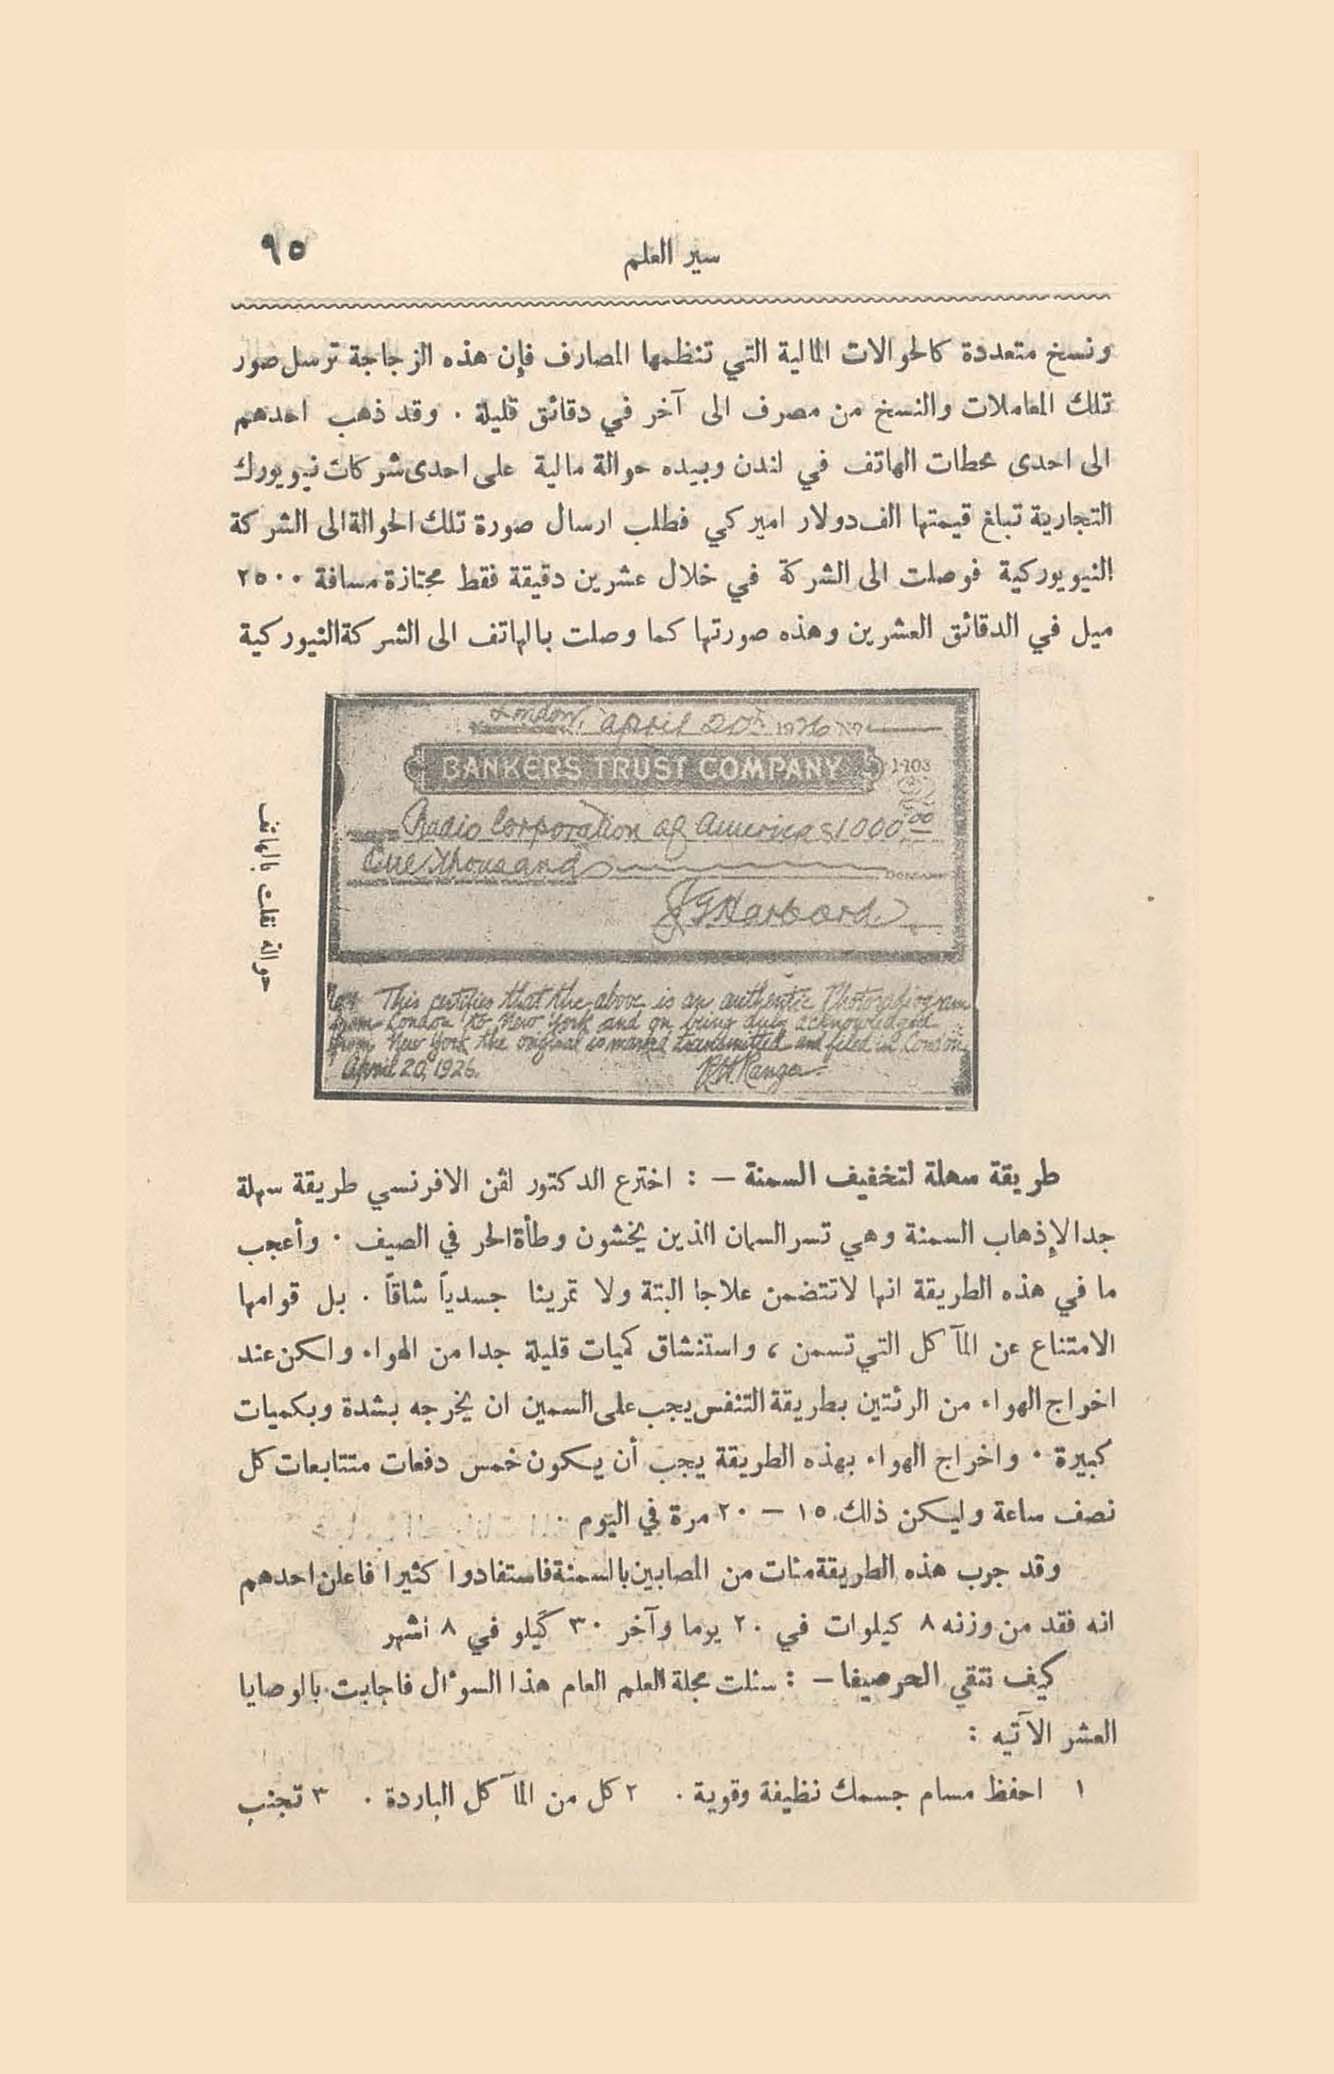 سير العلم
٩٥
ونسخ متعددة كالحوالات المالية التي تنظمها المصارف فإن هذه الزجاجة ترسل صور
تلك المعاملات والنسخ من مصرف الى آخر في دقائق قليلة . وقد ذهب احدهم
الى احدى محطات الهاتف في لندن وبيده حوالة مالية على احدى شركات نيويورك
التجارية تبلغ قيمتها الف دولار اميركي فطلب ارسال صورة تلك الحوالة الى الشركة
النيويوركية فوصلت الى الشركة في خلال عشرين دقيقة فقط مجتازة مسافة ٢٥٠٠
ميل في الدقائق العشرين وهذه صورتها كما وصلت بالهاتف الى الشركة النيوركية
London, April 20th 1926 No
BANKERS TRUST COMPANY 1-103
Radio Corporation of America $1000.00
One thousand DOLLARS
J G Harbord
This certifies that the above is an authentic Photoradiogram
from London to New York and on being duly acknowledged
from New York the original is marked transmitted and filed in London
April 20, 1926. RH Ranger
حوالة نقلت بالهاتف
طريقة سهلة لتخفيف السمنة — : اخترع الدكتور لفن الافرنسي طريقة سهلة
جدا لإذهاب السمنة وهي تسر السمان الذين يخشون وطأة الحر في الصيف . وأعجب
ما في هذه الطريقة انها لا تتضمن علاجا البتة ولا تمرينا جسدياً شاقاً . بل قوامها
الامتناع عن المآكل التي تسمن ، واستنشاق كميات قليلة جدا من الهواء ولكن عند
اخراج الهواء من الرئتين بطريقة التنفس يجب على السمين ان يخرجه بشدة وبكميات
كبيرة . واخراج الهواء بهذه الطريقة يجب أن يكون خمس دفعات متتابعات كل
نصف ساعة وليكن ذلك ١٥ — ٢٠ مرة في اليوم .
وقد جرب هذه الطريقة مئات من المصابين بالسمنة فاستفادوا كثيرا فاعلن احدهم
انه فقد من وزنه ٨ كيلوات في ٢٠ يوما وآخر ٣٠ كيلو في ٨ أشهر
كيف نتقي الحر صيفا — : سئلت مجلة العلم العام هذا السوءال فاجابت بالوصايا
العشر الآتيه :
١ احفظ مسام جسمك نظيفة وقوية . ٢ كل من المآكل الباردة . ٣ تجنب